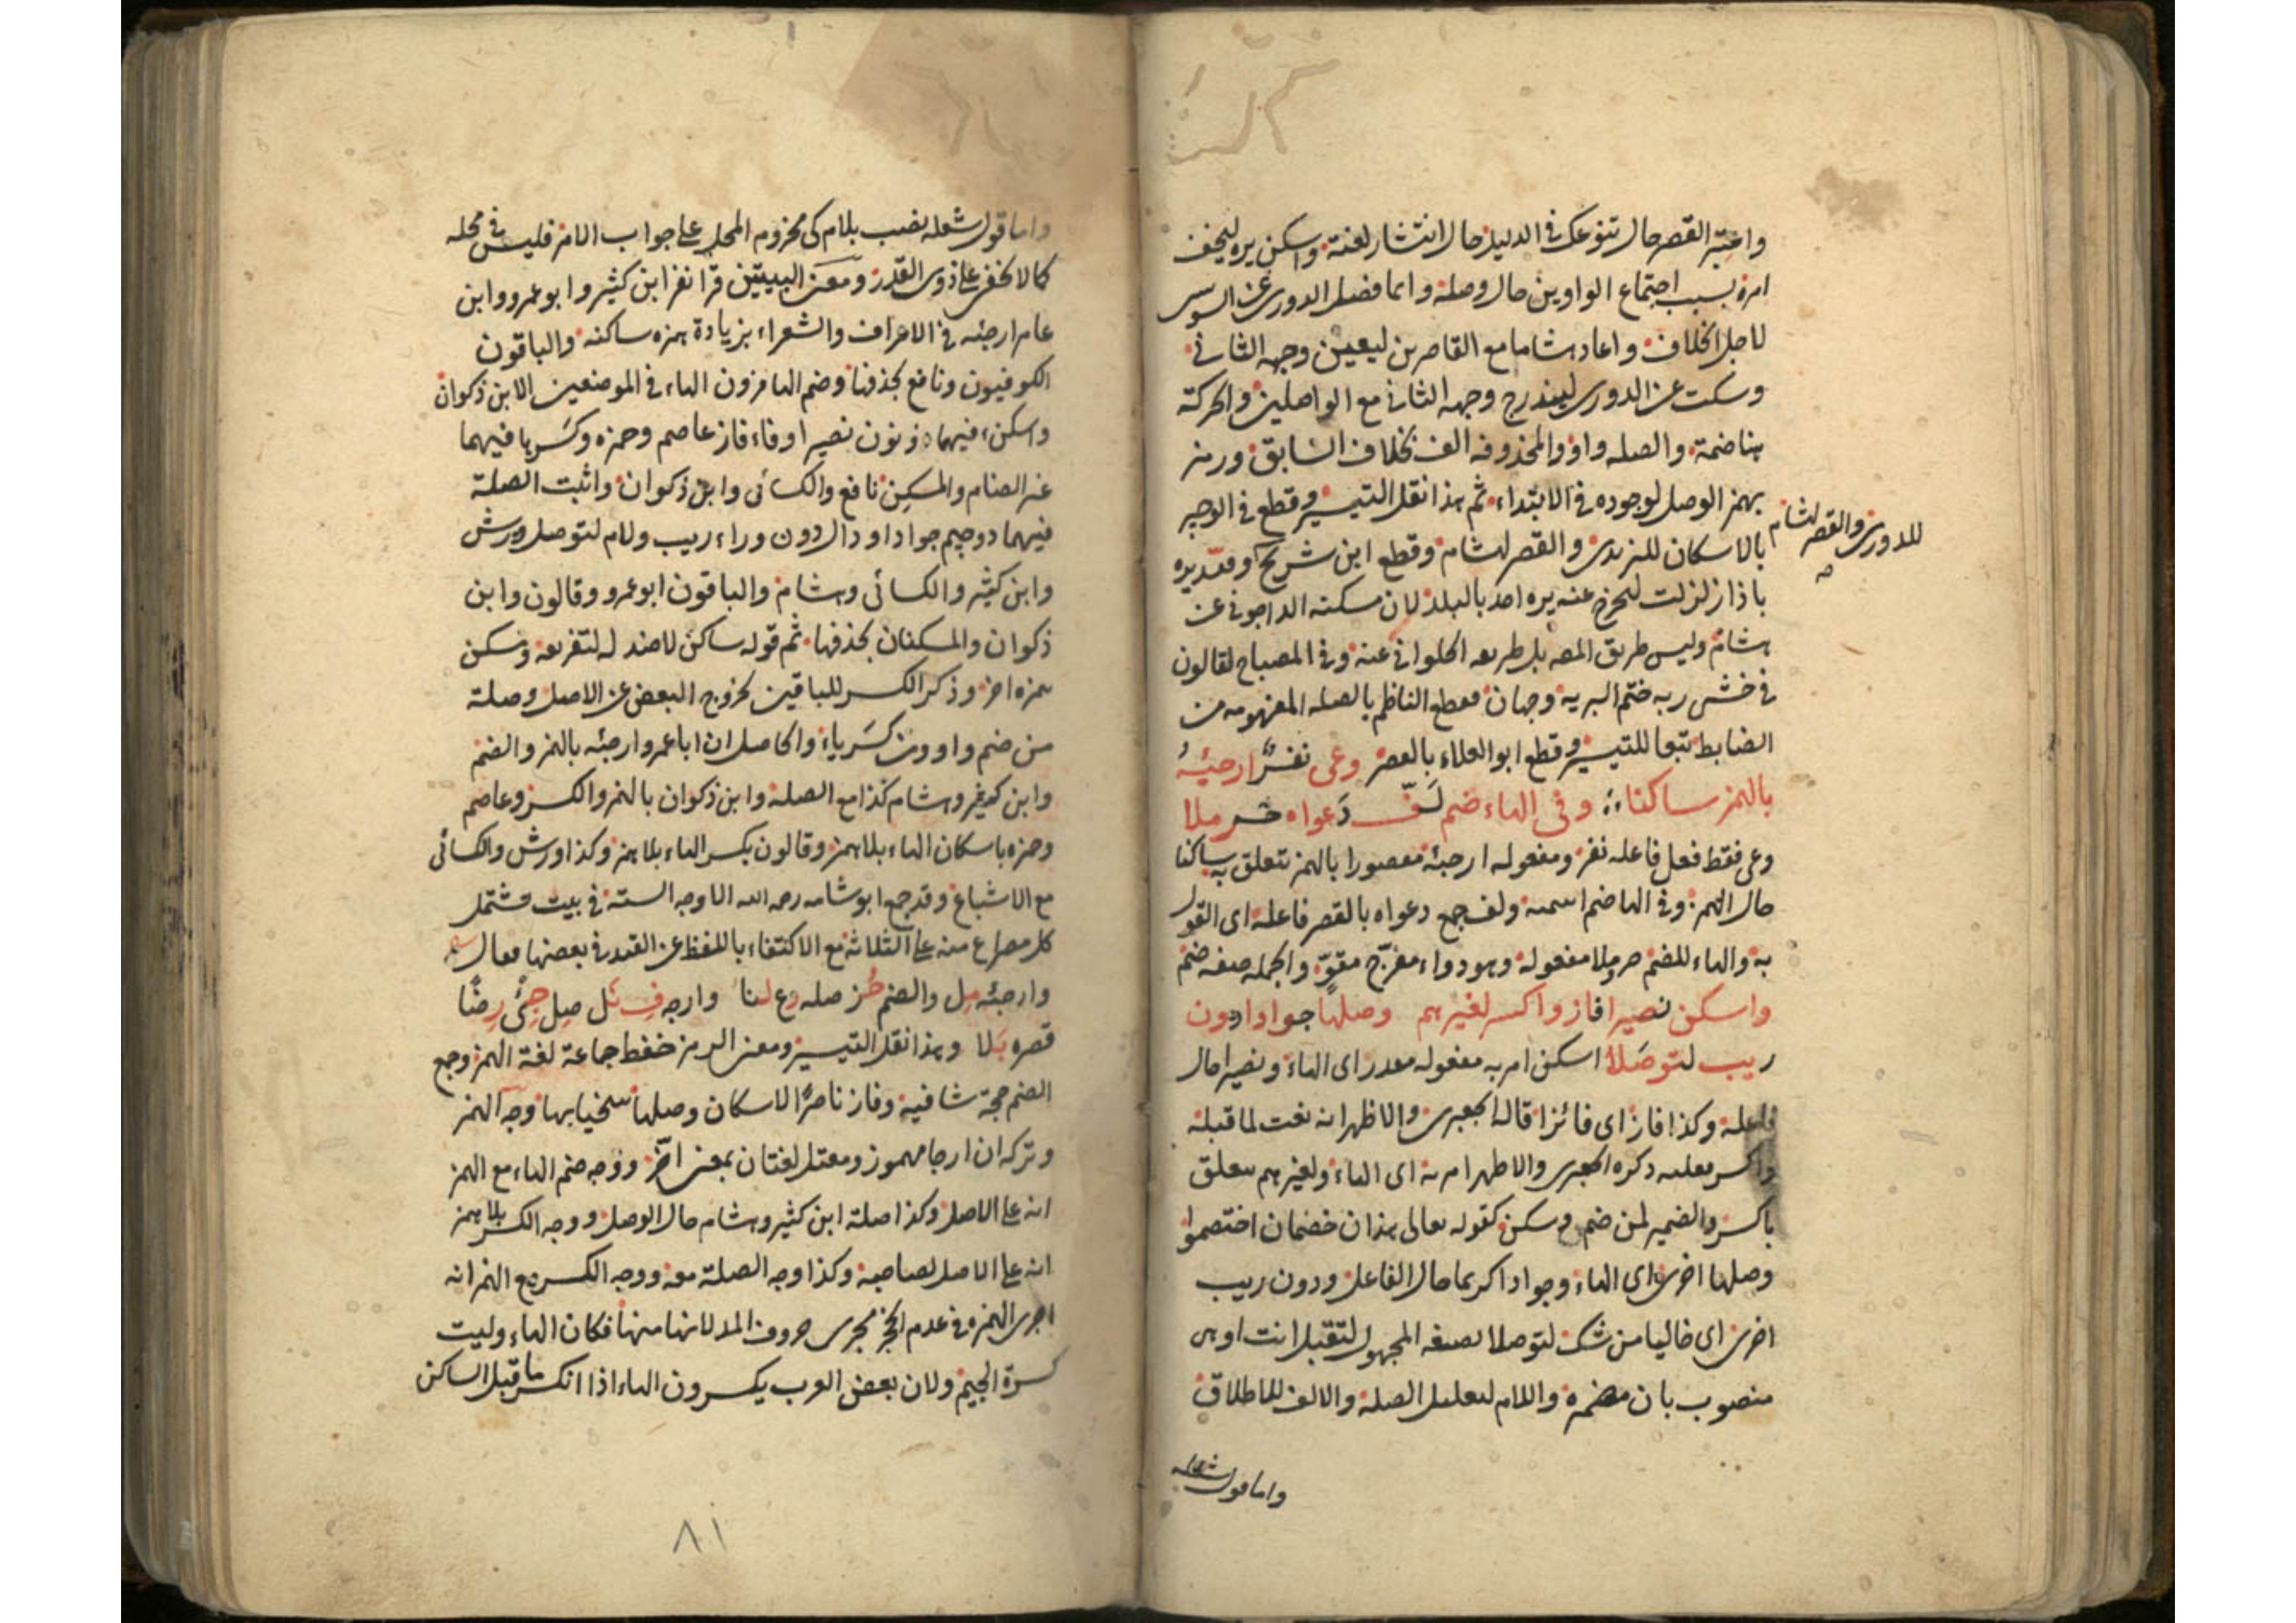 واعتبر القصر حال تنوعك في الدليل حال انتشار لغته واسكن يره ليخف
امره بسبب اجتماع الواوين حال وصله وانما فضل الدوري عن السوسي
لاجل الخلاف واعاد هشاما مع القاصرين ليعين وجهه الثاني
وسكت عن الدوري ليندرج وجهه الثاني مع الواصلين والحركة
هنا ضمة والصله واو والمحذوفه الف بخلاف السابق ورمز
بهمز الوصل لوجوده في الابتداء ثم هذا نقل التيسير وقطع في الوجيز
للدوري والقصر لهشام
بالاسكان لليزيدي والقصر لهشام وقطع ابن شريح وقيد يره
باذا زلزلت ليخرج عنه يره احد بالبلد لان مسكنه الداجوني عن
هشام وليس طريق المص بل طريقه الحلواني عنه وفي المصباح لقالون
في خشي ربه ختم البريه وجهان فقطع الناظم بالصله المفهومه من
الضابط تبعا للتيسير وقطع ابو العلاء بالقصر وعى نفر ارجئه
بالهمز ساكنا وفي الهاء ضم لف دعواه حرملا
وعى فقط فعل فاعله نفر ومفعوله ارجئه مقصورا بالهمز تتعلق به ساكنا
حال الهمز وفي الها ضم اسميه ولف جمع دعواه بالقصر فاعله اي القول
به والهاء للضم حرملا مفعوله وهو دواء مفرح مقو والجمله صفه ضم
واسكن نصيرا فاز واكسر لغيرهم وصلها جوادا دون
ريب لتوصلا اسكن امريه مفعوله مقدر اي الهاء ونصيرا حال
فاعله وكذا فاز اي فائزا قاله الجعبري والاظهر انه نعت لما قبله
واكسر فعليه ذكره الجعبري والاظهر امريه اي الهاء ولغيرهم يتعلق
باكسر والضمير لمن ضم وسكن كقوله تعالى هذان خصمان اختصموا
وصلها اخرى اي الهاء وجوادا كريما حال الفاعل ودون ريب
اخرى اي خاليا من شك لتوصلا بصيغه المجهول لتقبل انت او هي
منصوب بان مضمره واللام لتعليل الصله والالف للاطلاق
واما قول شعله
واما قول شعله نصب بلام كي مجزوم المحل على جواب الامر فليس في محله
كما لا يخفى على ذوي القدر ومعنى البيتين قرا نفر ابن كثير وابو عمرو وابن
عامر ارجئه في الاعراف والشعراء بزيادة همزه ساكنه والباقون
الكوفيون ونافع بحذفها وضم الهامزون الهاء في الموضعين الا ابن ذكوان
واسكنه فيهما ذو نون نصيرا وفاء فاز عاصم وحمزه وكسرها فيهما
غير الضام والمسكن نافع والكسائي وابن ذكوان واثبت الصلة
فيهما ذو جيم جوادا ودال دون وراء ريب ولام لتوصل ورش
وابن كثير والكسائي وهشام والباقون ابو عمرو وقالون وابن
ذكوان والمسكنان بحذفها ثم قوله ساكن لاضد له لتفريعه وسكن
همزه اخر وذكر الكسر للباقين لخروج البعض عن الاصل وصلة
من ضم واو ومن كسر ياء والحاصل ان ابا عمرو ارجئه بالهمز والضم
وابن كثير وهشام كذا مع الصله وابن ذكوان بالهمز والكسر وعاصم
وحمزه باسكان الهاء بلا همز وقالون بكسر الهاء بلا همز وكذا ورش والكسائي
مع الاشباع وقد جمع ابو شامه رحمه الله الاوجه السته في بيت مشتمل
كل مصراع منه على الثلاثه مع الاكتفاء باللفظ عن القيد في بعضها فقال
وارجئه مل والضم حز صله دع لنا وارجه ف نل صل جئ رضا
قصره بلا وهذا نقل التيسير ومعنى الرمز حفظ جماعة لغة الهمز وجمع
الضم حجة شافيه وفاز ناصر الاسكان وصلها سخيا بها وجه الهمز
وتركه ان ارجا مهموز ومعتل لغتان بمعنى اخر ووجه ضم الهاء مع الهمز
انه على الاصل وكذا صلة ابن كثير وهشام حال الوصل ووجه الكسر بلا همز
انه على الاصل لصاحبه وكذا وجه الصلة معه ووجه الكسر مع الهمز انه
اجرى الهمزه في عدم الحجز مجرى حروف المد لانها منها فكان الهاء وليت
كسرة الجيم ولان بعض العرب يكسرون الهاء اذا انكسر ما قبل الساكن
٨١